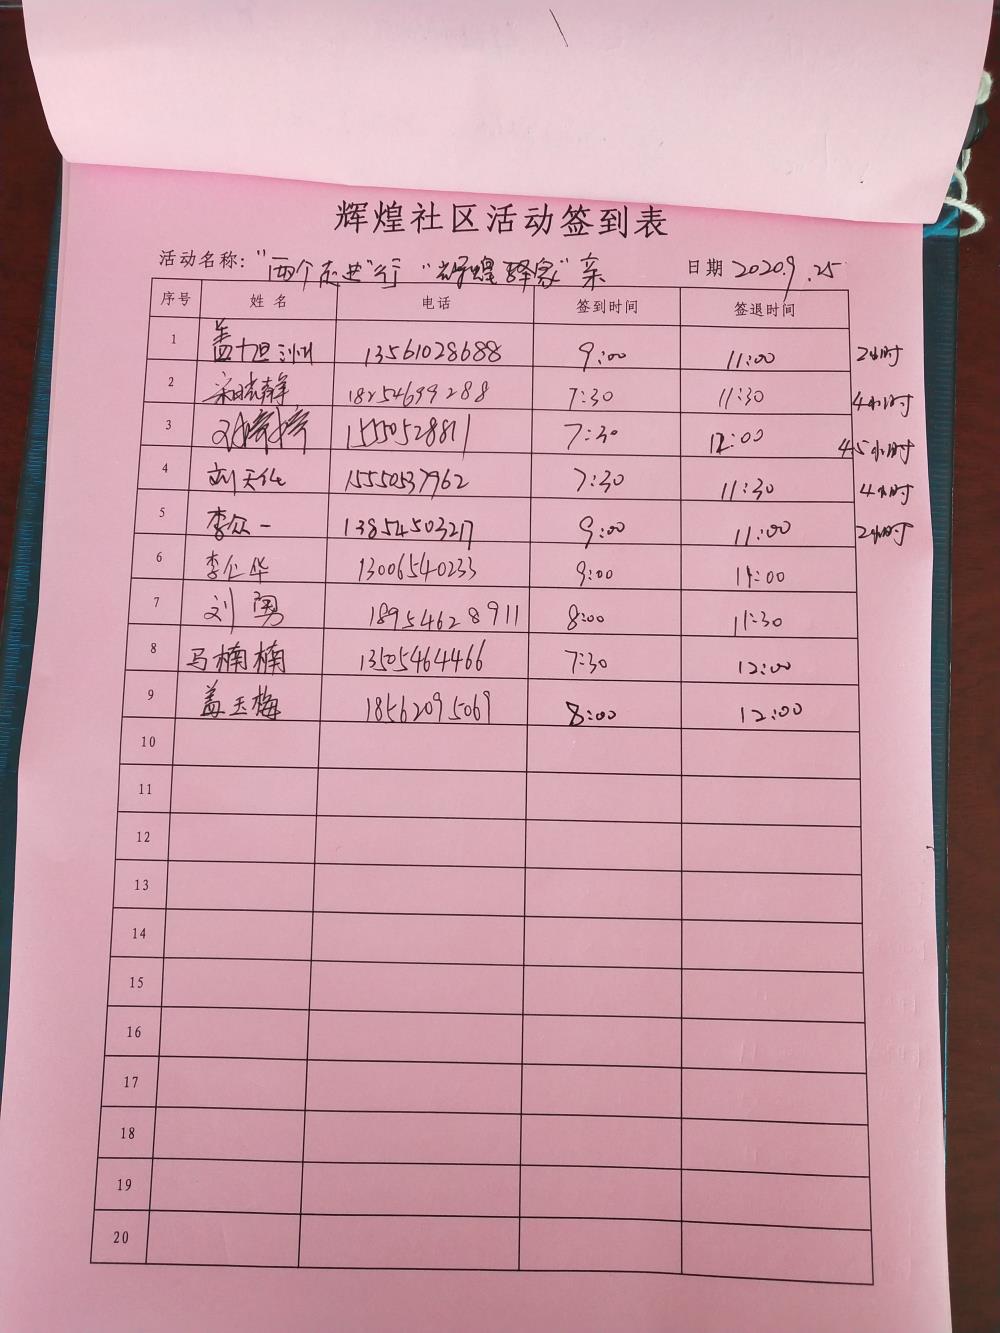 辉煌社区活动签到表
活动名称："两个走进"行 "辉煌驿家"亲 日期 2020.9.25
序号 姓名 电话 签到时间 签退时间
1 盖 13561028688 9:00 11:00 2小时
2 宋晓静 18254699288 7:30 11:30 4小时
3 刘婷婷 15550528811 7:30 12:00 4.5小时
4 刘天化 15550537962 7:30 11:30 4小时
5 李众一 13854503217 9:00 11:00 2小时
6 李仁华 13006540233 9:00 11:00
7 刘勇 18954628911 8:00 11:30
8 马楠楠 13505464466 7:30 12:00
9 盖玉梅 18562095069 8:00 12:00
10
11
12
13
14
15
16
17
18
19
20